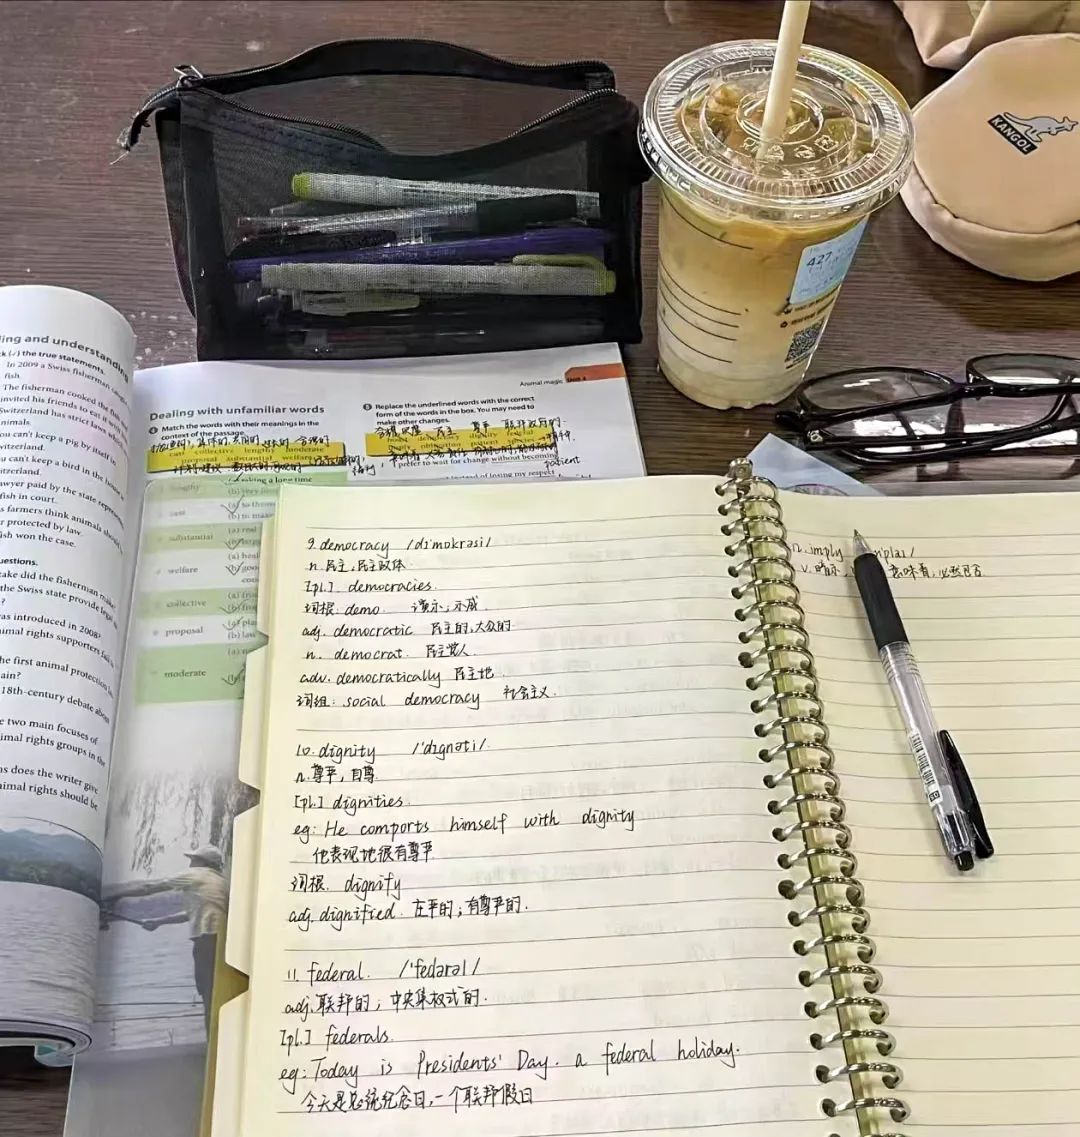 KANGOL
427
ling and understanding
the true statements.
In 2009 a Swiss fisherman
fish.
The fisherman cooked the
invited his friends to eat it
Switzerland has strict laws
nimals.
ou can't keep a pig by itself in
witzerland.
ou can't keep a bird in the
itzerland.
wyer paid by the state
fish in court.
s farmers think animals
protected by law.
sh won the case.
uestions.
take did the fisherman make?
the Swiss state provide
as introduced in 2008?
imal rights supporters
he first animal protection
ain?
18th-century debate about
e two main focuses of
imal rights groups in the
ns does the writer give
nimal rights should be
Animal magic
Dealing with unfamiliar words
4 Match the words with their meanings in the
context of the passage.
cast collective lengthy moderate
proposal substantial welfare
taking a long time
lengthy
cast
substantial
welfare
collective
proposal
moderate
5 Replace the underlined words with the correct
form of the words in the box. You may need to
make other changes.
democracy dignity
obligation patient species
I prefer to wait for change without becoming
patient
instead of losing my respect
9. democracy /dɪ'mɒkrəsi/
n. 民主,民主政体.
[pl.] democracies.
词根: demo. 演示;示威.
adj. democratic 民主的,大众的.
n. democrat. 民主党人.
adv. democratically 民主地.
词组: social democracy 社会主义.
10. dignity /'dɪgnəti/.
n. 尊严,自尊.
[pl.] dignities.
eg: He comports himself with dignity
他表现地很有尊严.
词根. dignify
adj. dignified. 庄严的;有尊严的.
11. federal. /'fedərəl/
adj. 联邦的;中央集权式的.
[pl.] federals.
eg: Today is Presidents' Day. a federal holiday.
今天是总统纪念日,一个联邦假日
12. imply
v. 暗示, 意味着,必然包含